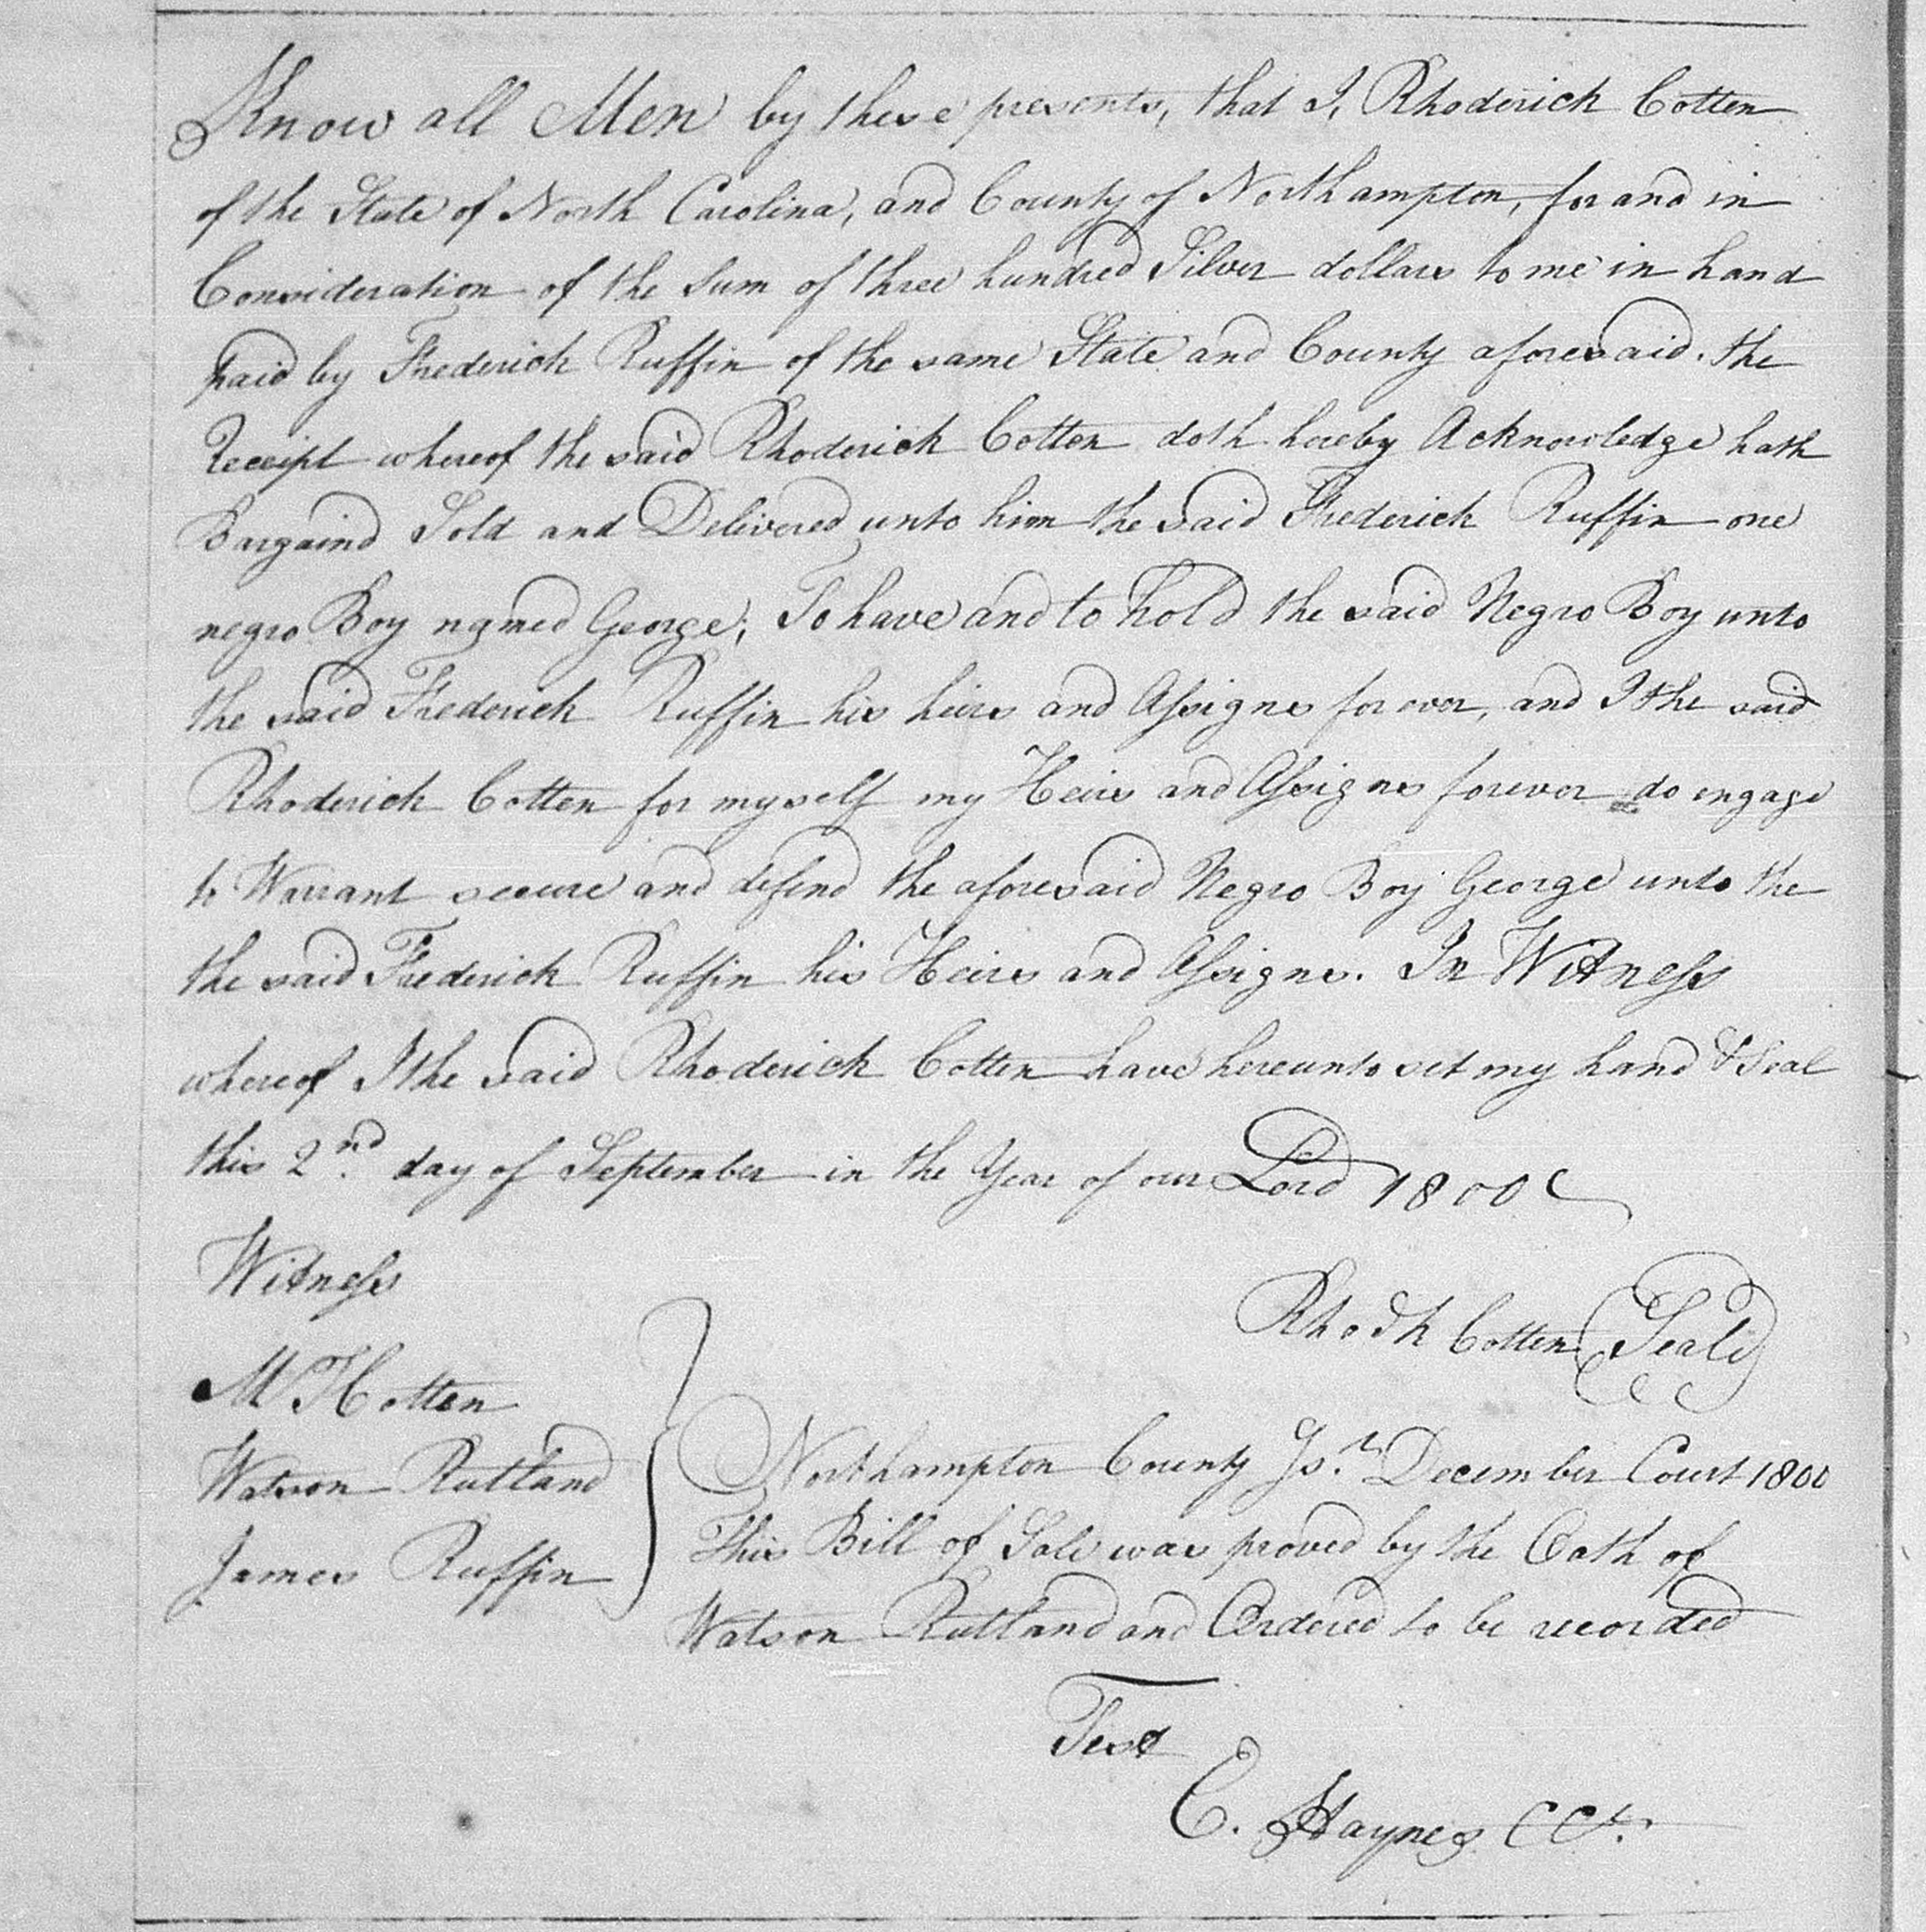 Know all Men by these presents, that I, Rhoderick Cotten
of the State of North Carolina, and County of Northampton, for and in
Consideration of the Sum of three hundred Silver dollars to me in hand
paid by Frederick Ruffin of the same State and County aforesaid. the
Receipt whereof the said Rhoderick Cotten doth hereby Acknowledge hath
Bargaind Sold and Delivered unto him the said Frederick Ruffin one
negro Boy named George; To have and to hold the said Negro Boy unto
the said Frederick Ruffin his heirs and Assigns for ever, and I the said
Rhoderick Cotten for myself my Heirs and Assigns forever do engage
to Warrant secure and defend the aforesaid Negro Boy George unto the
the said Frederick Ruffin his Heirs and Assigns. In Witness
whereof I the said Rhoderick Cotten have hereunto set my hand & Seal
this 2nd. day of September in the Year of our Lord 1800
Witness
Rhodk Cotten (Seal)
M H Cotten
Watson Rutland
James Ruffin
Northampton County Js.t December Court 1800
This Bill of Sale was proved by the Oath of
Watson Rutland and Ordered to be recorded
Test
C. Haynes CCt.